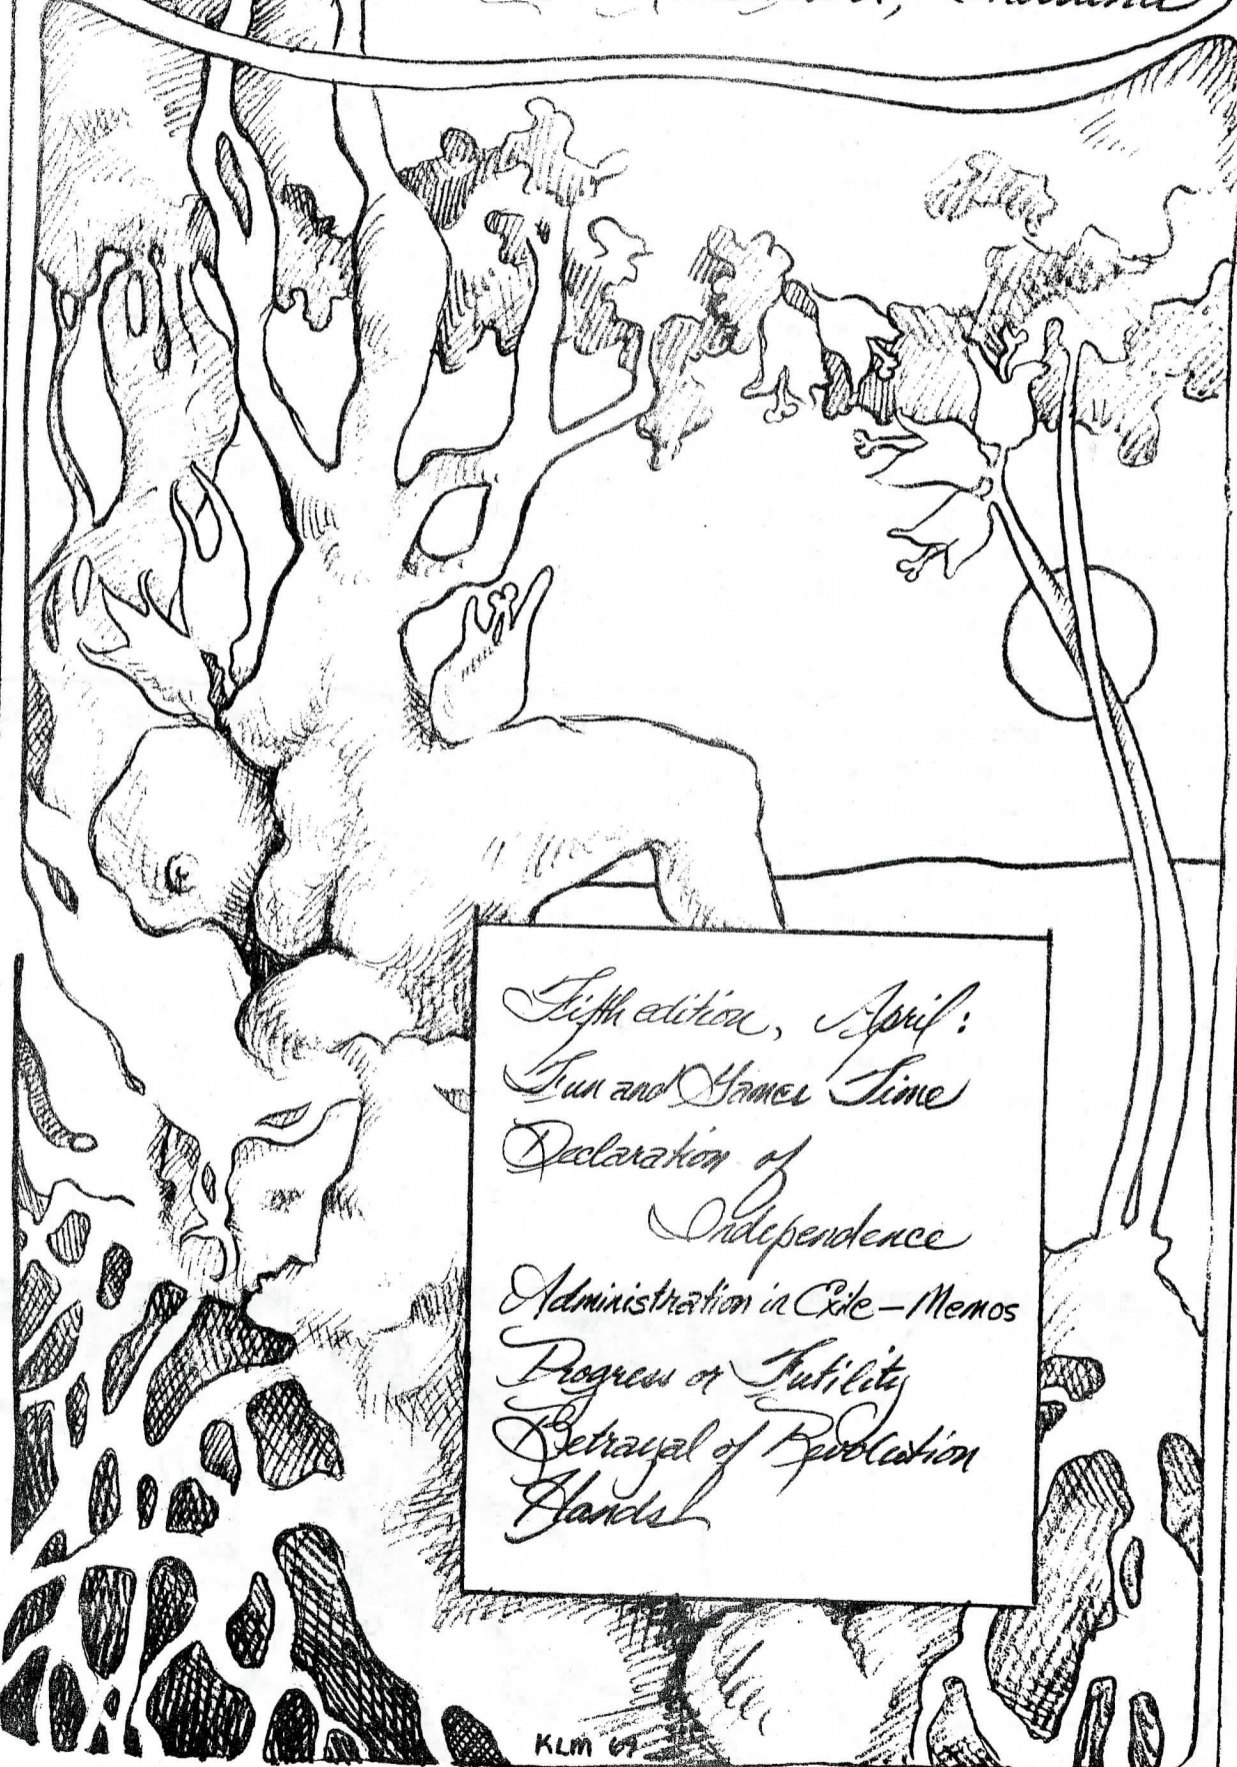 Indiana
Fifth edition, April:
Fun and Games Time
Declaration of
Independence
Administration in Exile – Memos
Progress or Futility
Betrayal of Revolution
Hands
KLM '69